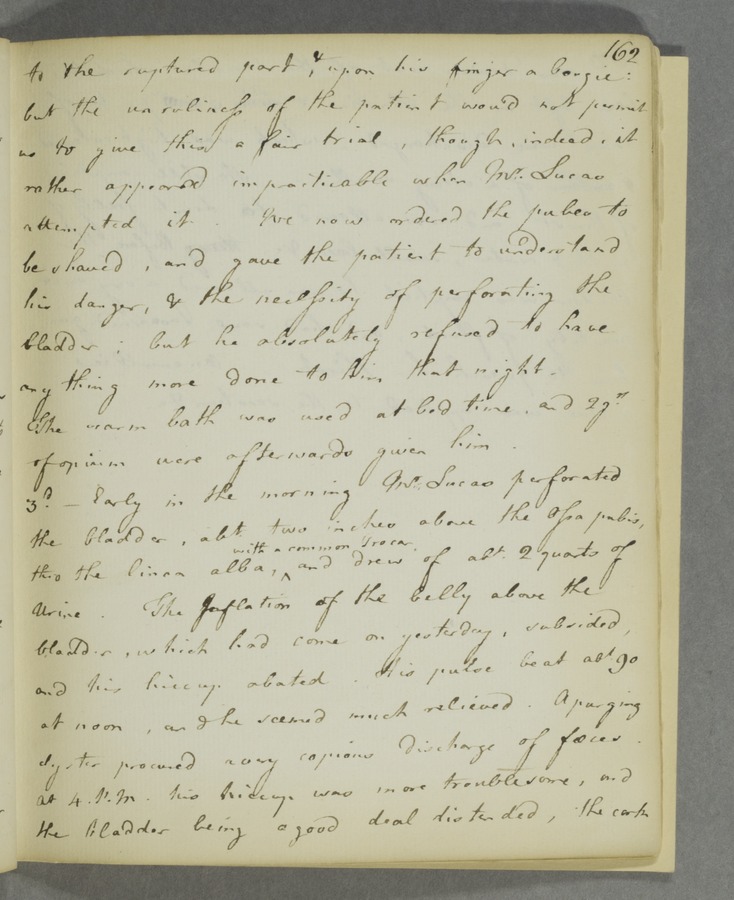 162
to the ruptured part, & upon his finger a bougie:
but the unruliness of the patient would not permit
us to give this a fair trial, though, indeed, it
rather appeared impracticable when Mr. Lucas
attempted it. We now ordered the pubes to
be shaved, and gave the patient to understand
his danger, & the necessity of perforating the
bladder; but he absolutely refused to have
any thing more done to him that night.
The warm bath was used at bed time, and 2 grs
of opium were afterwards given him.
3d. — Early in the morning Mr. Lucas perforated
the bladder, abt. two inches above the Ossa pubis,
with a common Trocar,
thro the linea alba, ^ and drew of abt. 2 quarts of
Urine. The Inflation of the belly above the
bladder, which had come on yesterday, subsided,
and his hiccup abated. His pulse beat abt 90
at noon, and he seemed much relieved. A purging
clyster procured a very copious discharge of fæces.
at 4. P.M. his hiccup was more troublesome, and
the bladder being a good deal distended, the cork